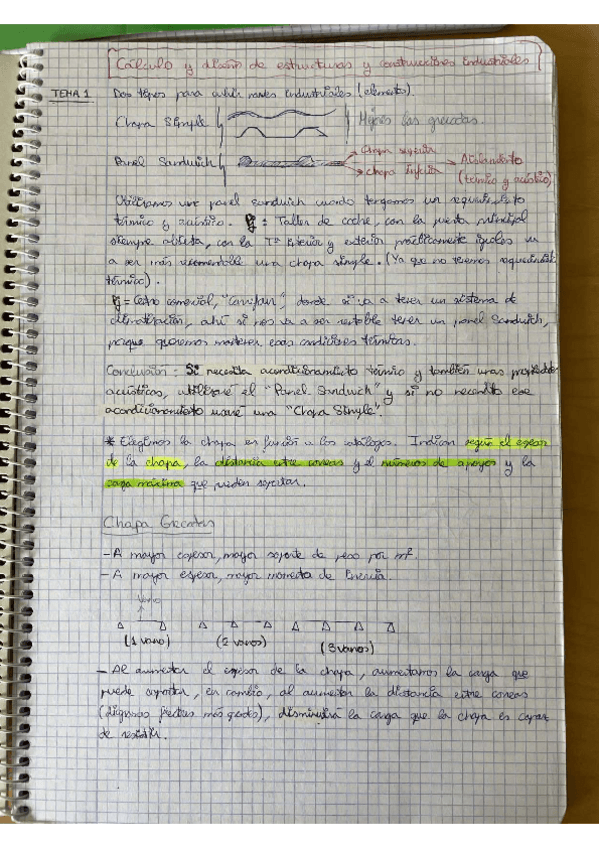 Cálculo y diseño de estructuras y construcciones industriales
TEMA 1 Dos tipos para cubrir naves industriales (elementos).
Chapa Simple Mejor las grecadas.
Chapa superior
Panel Sandwich Aislamiento
chapa inferior (térmico y acústico)
Utilizamos un panel sandwich cuando tengamos un requerimiento
térmico y acústico. Ej: Taller de coche, con la puerta principal
siempre abierta, con la Tª interior y exterior prácticamente iguales va
a ser más recomendable una chapa simple. (Ya que no tenemos requerimiento
térmico).
Ej = Centro comercial, "Carrefour", donde si va a tener un sistema de
climatización, ahí si nos va a ser rentable tener un panel Sandwich,
porque queremos mantener esas condiciones térmicas.
Conclusión: Si necesita acondicionamiento térmico y también unas propiedades
acústicas, utilizaré el "Panel Sandwich" y si no necesito ese
acondicionamiento usaré una "Chapa Simple".
* Elegimos la chapa en función a los catálogos. Indican según el espesor
de la chapa, la distancia entre correas y el números de apoyos y la
carga máxima que pueden soportar.
Chapa Grecadas
- A mayor espesor, mayor soporte de peso por m².
- A mayor espesor, mayor momento de Inercia.
Vano
(1 vano) (2 vanos) (3 vanos)
- Al aumentar el espesor de la chapa, aumentamos la carga que
puede soportar, en cambio, al aumentar la distancia entre correas
(digamos más grandes), disminuirá la carga que la chapa es capaz
de resistir.